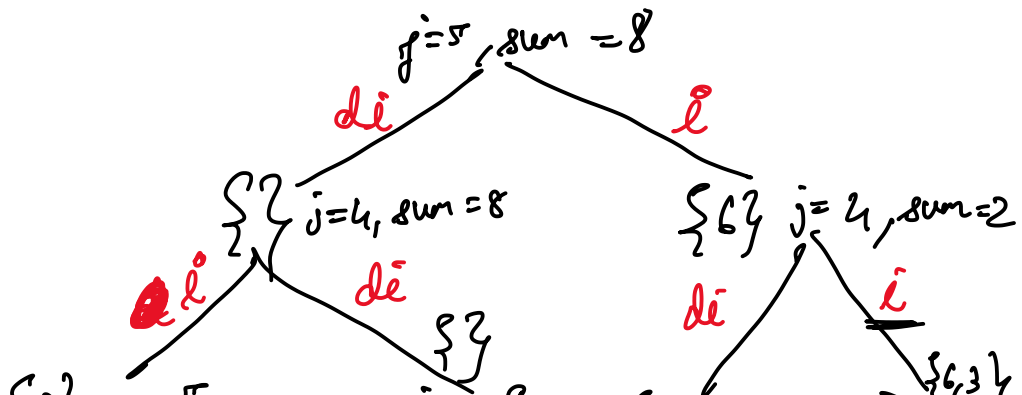 j=5, sum = 8
di i
{ } j=4, sum = 8 {6} j=4, sum=2
i di di i
{ }
{6,3}